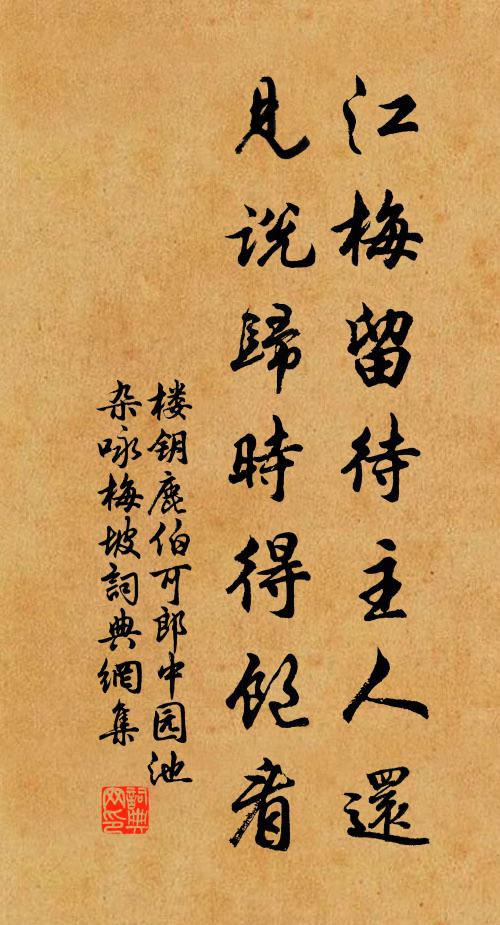 江梅留待主人還
見説歸時得飽看
楼钥鹿伯可郎中园池
杂咏梅坡詞典網集
詞典網印